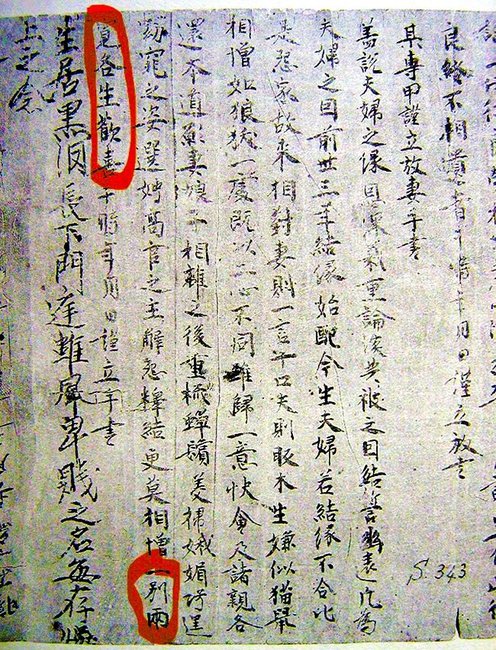 良終不相遺者于時年月日謹立放書
某專甲謹立放妻手書
蓋說夫婦之緣恩深義重論談共被之因結誓幽遠凡為
夫婦之因前世三年結緣始配今生夫婦若結緣不合比
是怨家故來相對妻則一言十口夫則販木生嫌似猫鼠
相憎如狼一處既以二心不同難歸一意快會及諸親各
還本道願妻娘子相離之後重梳蟬鬢美掃娥媚巧逞
窈窕之姿選娉高官之主解怨釋結更莫相憎一別兩
寬各生歡喜于時年月日謹立手書
生居黑長下門庭難屏卑賤之名每存
上之念
S.343